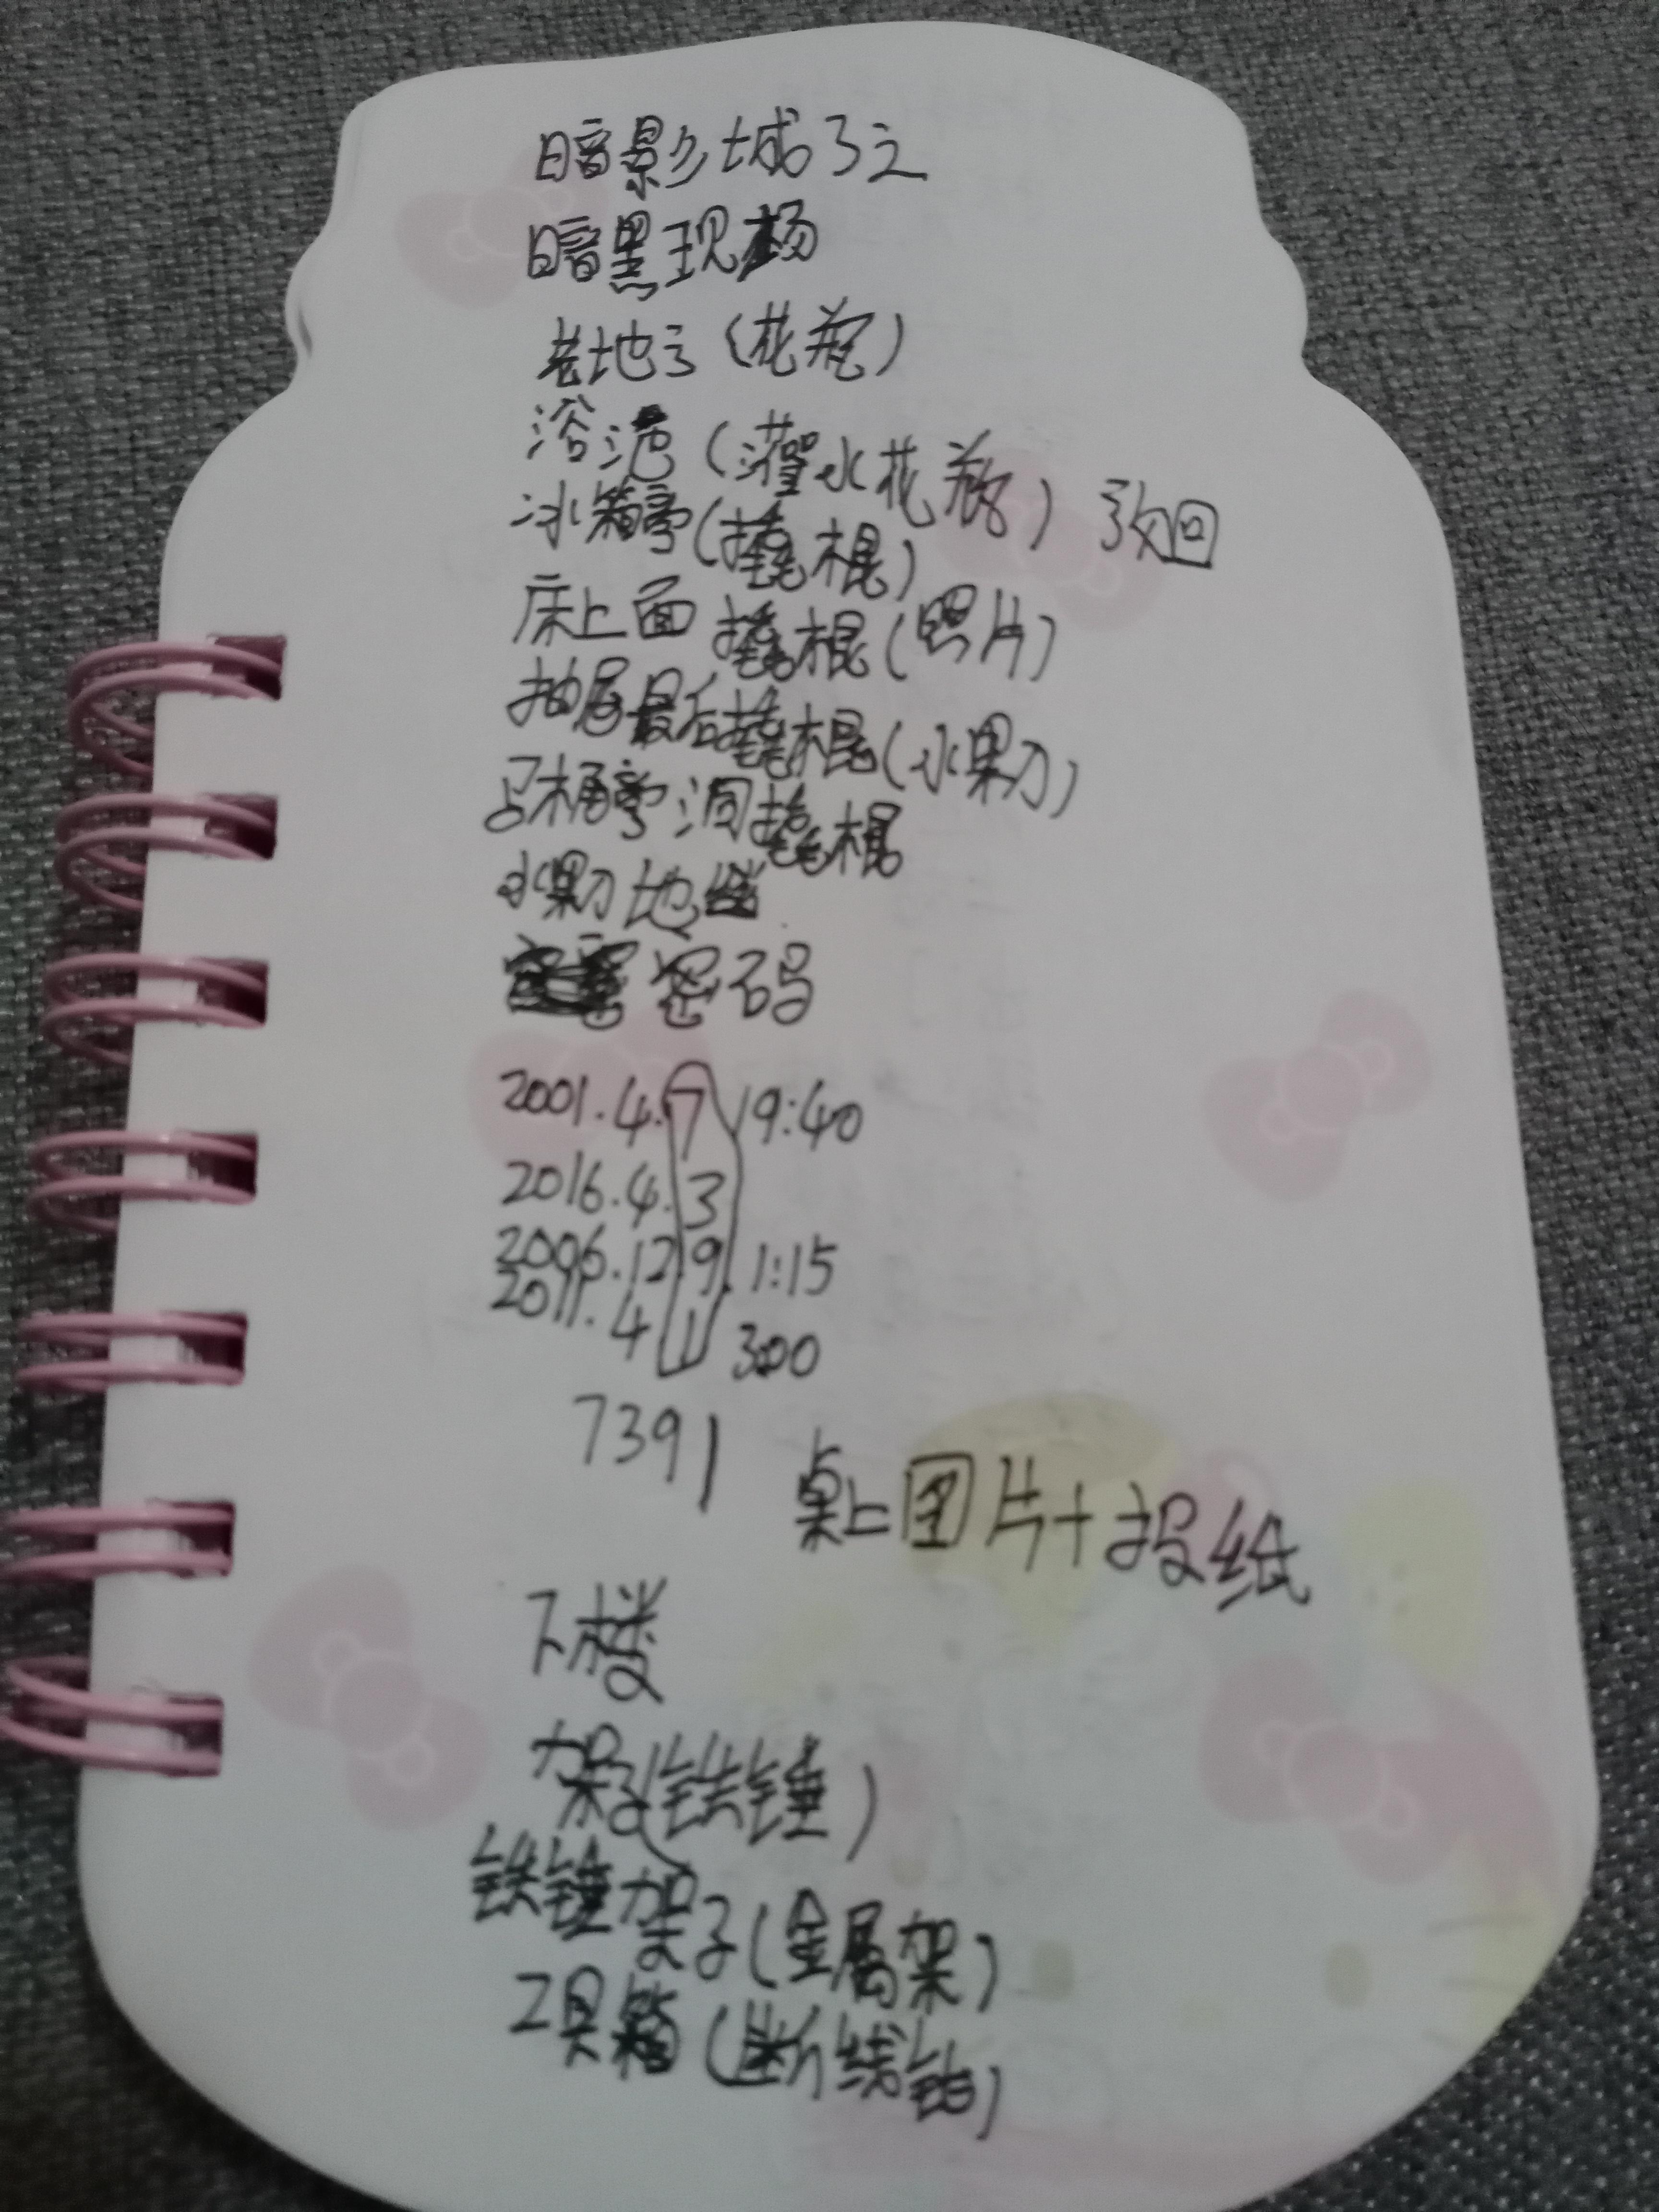 暗影城了之
暗黑现杨
老地方(花瓶)
浴池(灌水花瓶)放回
冰箱旁(撬棍)
床上面撬棍(照片)
抽屉最后撬棍(水果刀)
马桶旁洞撬棍
水果刀地毯
密码
2001.4.7 19:40
2016.4.3
2006.12.9.1:15
2011.4 1 3:00
7391
桌上图片+报纸
下楼
架子(铁锤)
铁锤架子(金属架)
工具箱(断线钳)